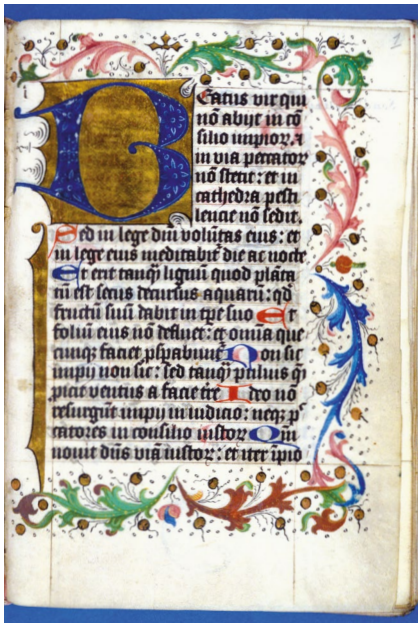 1
Beatus vir qui
nō abijt in cō
silio impioꝝ ⁊
in via peccatoꝝ
nō stetit : et in
cathedra pesti
lencie nō sedit .
Sed in lege dn̄i volūtas eius : et
in lege eius meditabit̄ die ac nocte
Et erit tanq̄ lignū quod plāta
tū est secus decursus aquarū : qd̄
fructū suū dabit in tꝑe suo Et
foliū eius nō defluet : et om̄ia que
cunqꝫ faciet ꝓsꝑabunt̄ Non sic
impij non sic : sed tanq̄ puluis q̄
ꝓicit ventus a facie tr̄e Ideo nō
resurgūt impij in iudicio : neqꝫ p̄
catores in consilio iustoꝝ Qm̄
nouit dn̄s viā iustoꝝ : et iter īpioꝝ